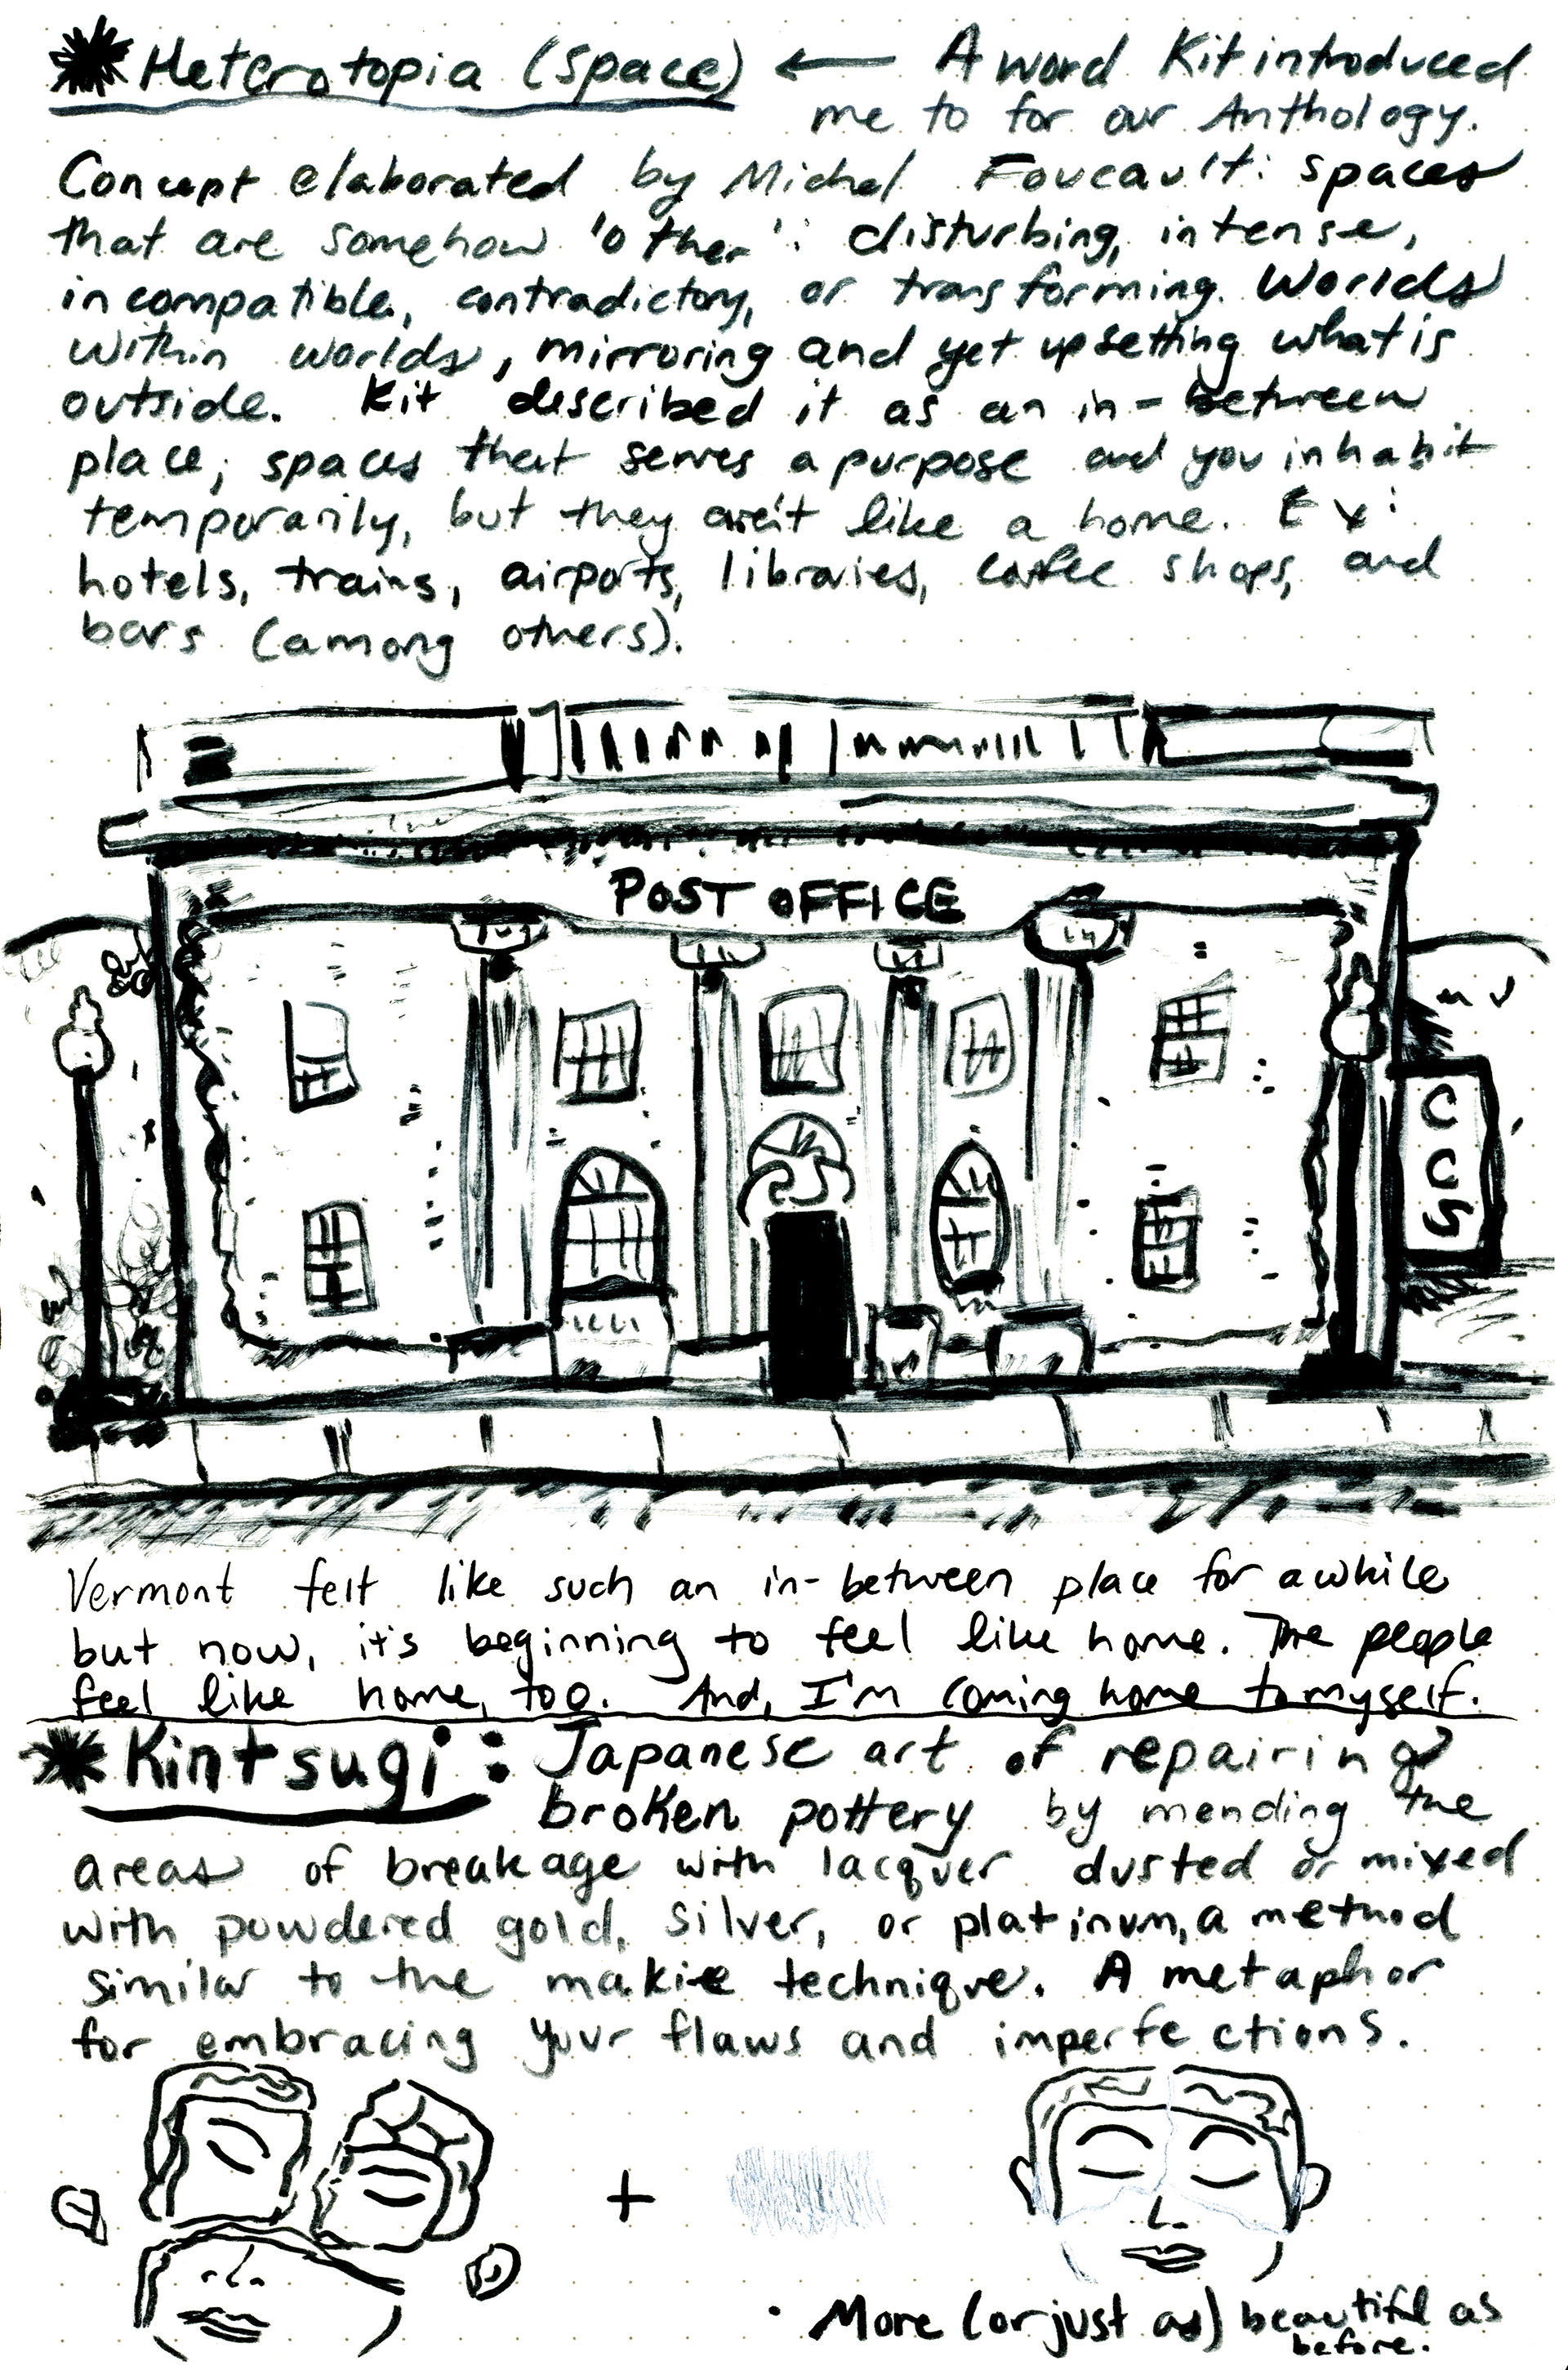 Heterotopia (space) ← A word Kit introduced
me to for our Anthology.
Concept elaborated by Michel Foucault: spaces
that are somehow 'other': disturbing, intense,
incompatible, contradictory, or transforming. Worlds
within worlds, mirroring and yet upsetting what is
outside. Kit described it as an in-between
place, spaces that serves a purpose and you inhabit
temporarily, but they aren't like a home. Ex:
hotels, trains, airports, libraries, coffee shops, and
bars (among others).
POST OFFICE
C
C
S
Vermont felt like such an in-between place for awhile
but now, it's beginning to feel like home. The people
feel like home, too. And, I'm coming home to myself.
Kintsugi: Japanese art of repairing
broken pottery by mending the
areas of breakage with lacquer dusted or mixed
with powdered gold, silver, or platinum, a method
similar to the makie technique. A metaphor
for embracing your flaws and imperfections.
+
• More (or just as) beautiful as
before.